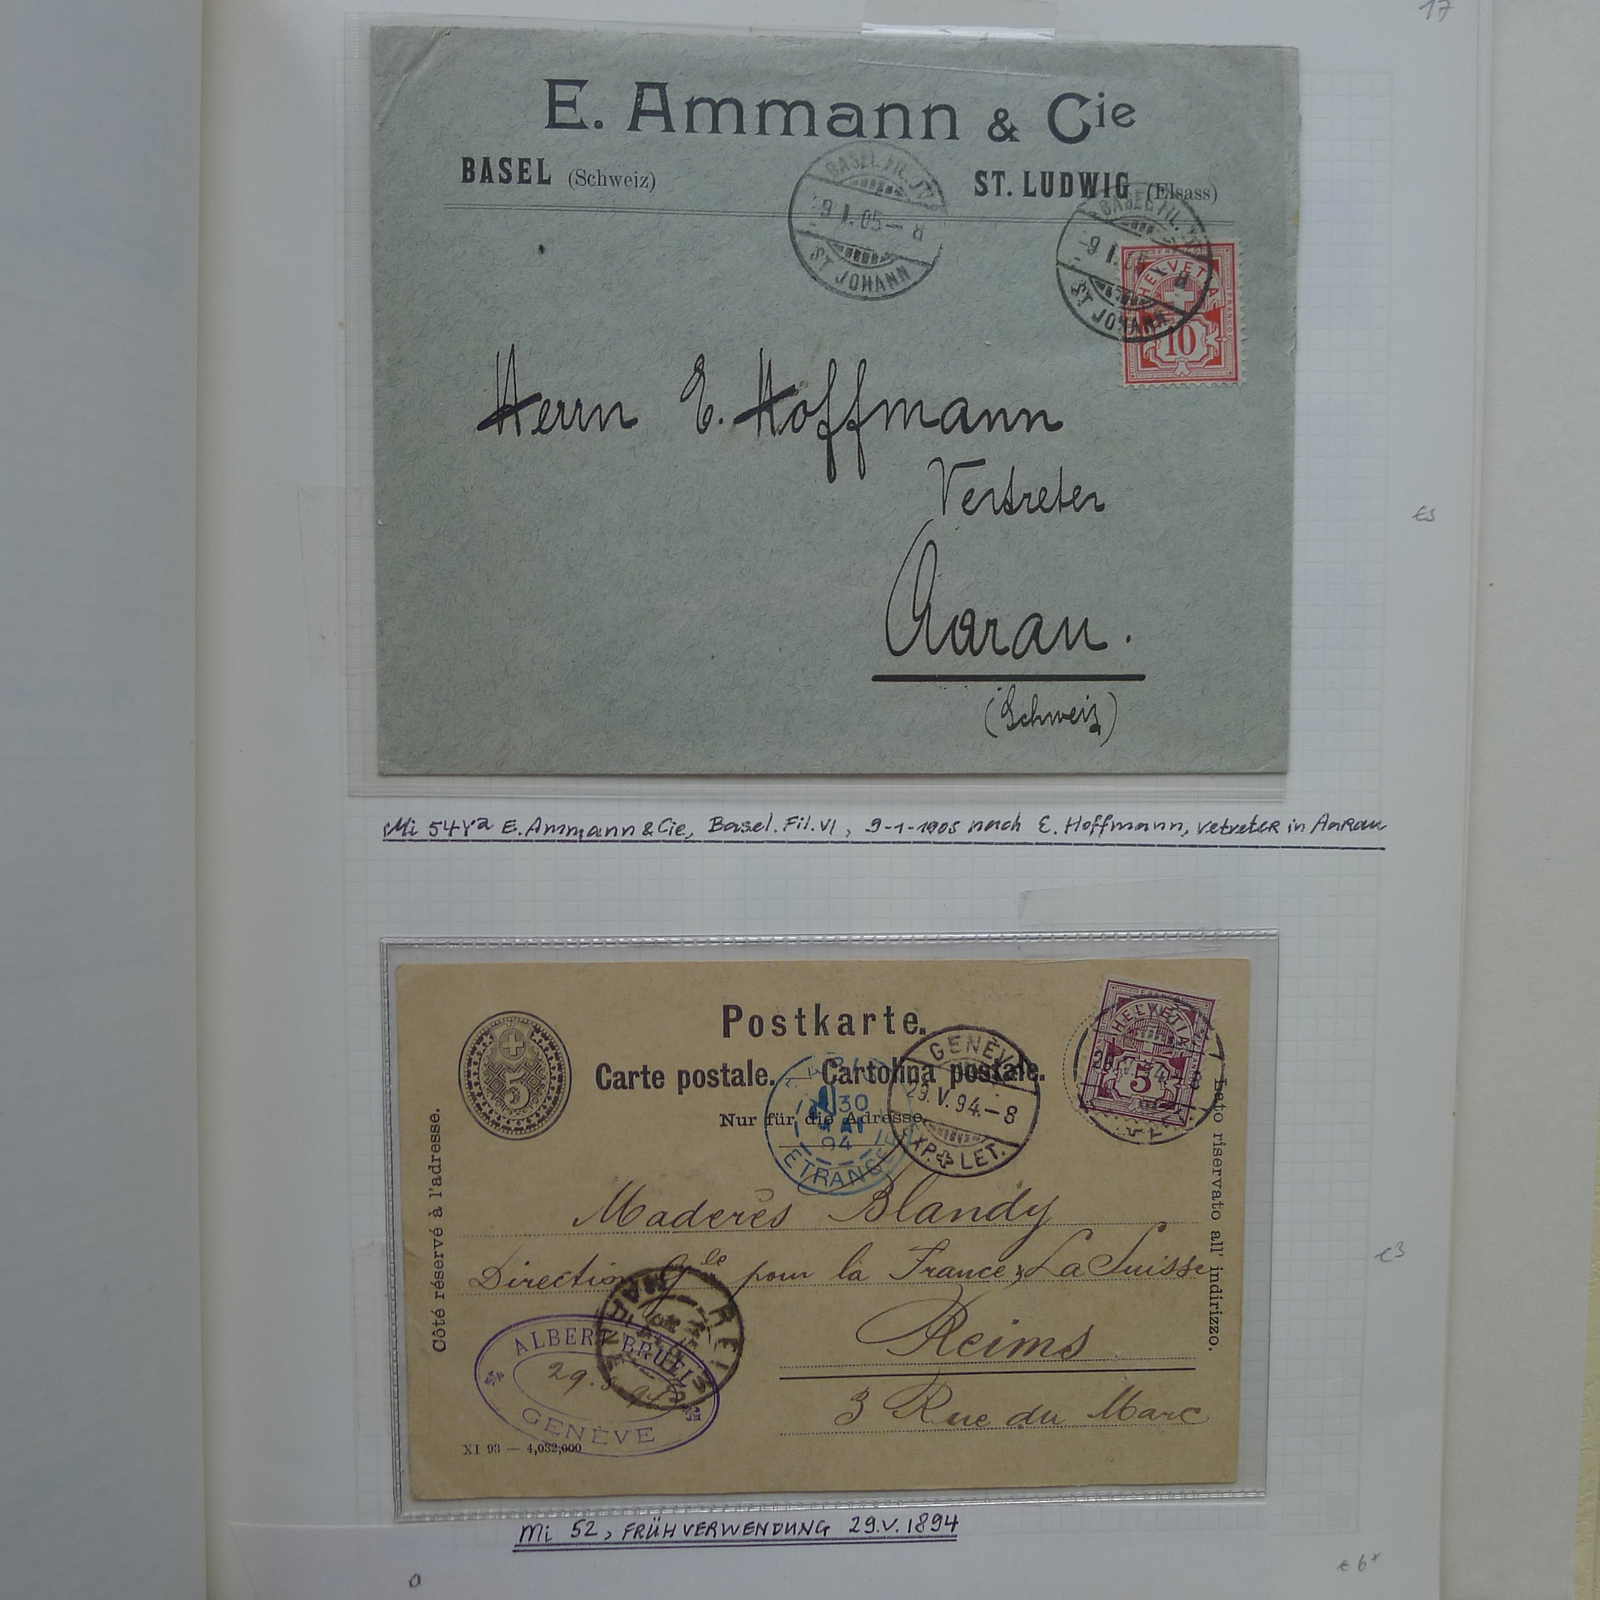 17
E. Ammann & Cie
BASEL (Schweiz)
ST. LUDWIG (Elsass)
BASEL FIL.
9 I. 05 — 8
ST. JOHANN
BASEL FIL.
9 I. 05
ST. JOHANN
HELVETIA
10
Herrn E. Hoffmann
Vertreter
Aarau.
(Schweiz)
€3
Mi 54Ya E. Ammann & Cie, Basel. Fil. VI, 9-1-1905 nach E. Hoffmann, vetreter in Aarau
Postkarte.
Carte postale. Cartolina postale.
Nur für die Adresse
5
HELVETIA
5
GENÈVE
29.V.94.-8
EXP. LET.
30
MAI
94
ETRANGER
Côté réservé à l'adresse.
Lato riservato all' indirizzo.
Maderès Blandy
Direction Gle pour la France, La Suisse
Reims
3 Rue du Marc
REIMS
MARNE
ALBERT BRUEIS
29.5.94
GENÈVE
XI 93 — 4,032,000
€3
Mi 52, FRÜHVERWENDUNG 29.V.1894
€6